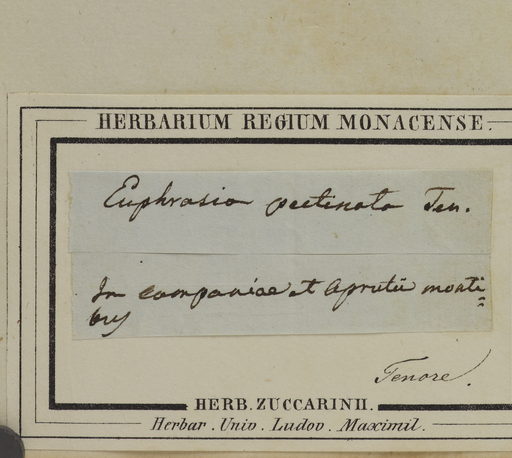 HERBARIUM REGIUM MONACENSE.
Euphrasia pectinata Ten.
In campaniae et Aprutii monti=
bus
Tenore.
HERB. ZUCCARINII.
Herbar. Univ. Ludov. Maximil.